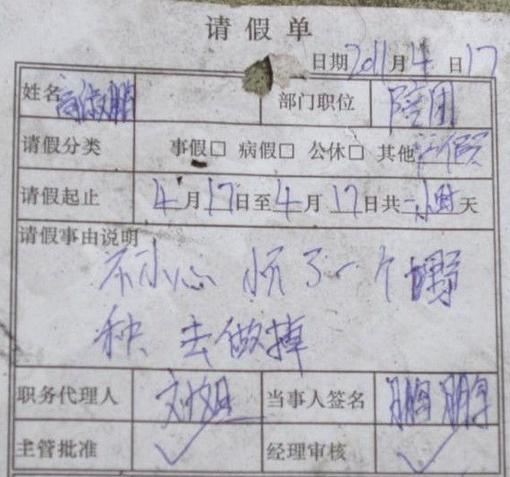 请假单
日期 2011 月 4 日 17
姓名 部门职位 陪团
请假分类 事假□ 病假□ 公休□ 其他
请假起止 4月17日至4月17日共一小时天
请假事由说明
不小心怀了一个野
种 去做掉
职务代理人 当事人签名 鹏鹏
主管批准 ✓ 经理审核 ✓